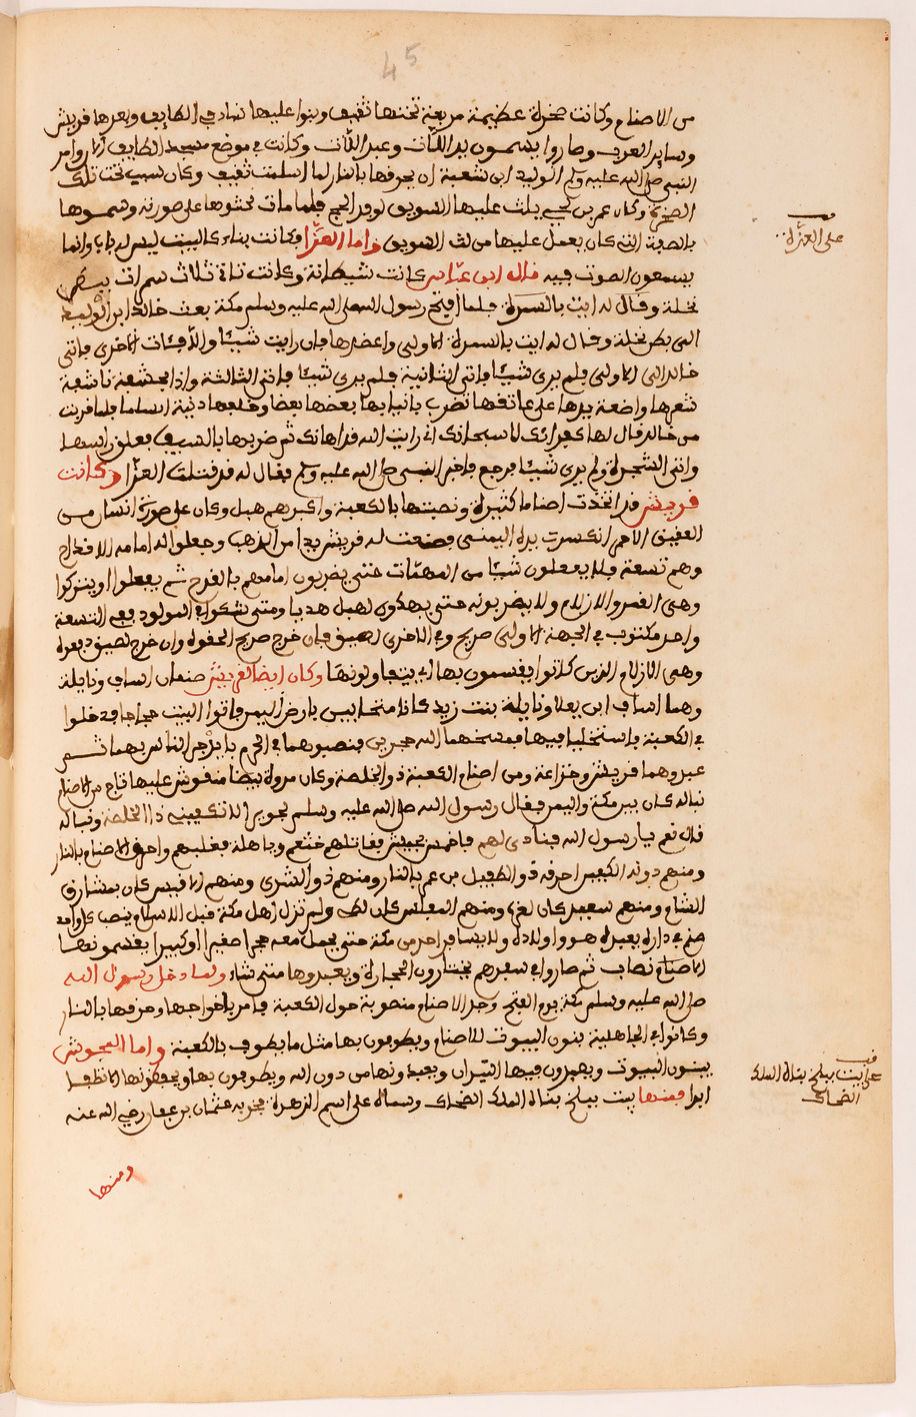 45
من الاصنام وكانت صخرة عظيمة مربعة تحتها ثقيف وبنوا عليها بناء في الطايف وبعدها قريش
وساير العرب وصاروا يسمون بيد اللات وعبد اللات وكانت في موضع مسجد الطايف الان وامر
النبي صلى الله عليه وسلم الوليد ابن شعبة ان يحرفها بالنار لما اسلمت ثقيف وكان سبب نحت تلك
الصخرة وكان عمر بن لحيي يلت عليها السويق لوفد الحج فلما مات نحتوها على صورته وسموها
بالصفة التي كان يعمل عليها من لت السويق واما العزا فكانت بناء كالبيت ليس له باب وانما
يسمعون الصوت فيه قال ابن عباس كانت شيطانة وكانت تاتي ثلاث سمرات ببطن
نخلة وقال له ايت بالسمرة فلما افتتح رسول الله صلى الله عليه وسلم مكة بعث خالد ابن الوليد
الى بطن نخلة وقال له ايت بالسمرة الاولى واعضدها فان رايت شيئا والا فئات الاخرى فاتى
خالد الى الاولى فلم يرى شيئا فاتى الثانية فلم يرى شيئا فاتى الثالثة واذا بحشعة ناشعة
شعرها واضعة يدها على عاتقها تضرب بانيابها بعضها بعضا وخلفها دنية السلما فلما قربت
من خالد قال لها كفرانك لا سبحانك اني رايت الله قد اهانك ثم ضربها بالسيف ففلق راسها
واتى الشجرة ولم يرى شيئا فرجع فاخبر النبي صلى الله عليه وسلم فقال له قد قتلت العزا وكانت
قريش قد اتخذت اصناما كثيرة ونصبتها بالكعبة واكبرهم هبل وكان على صورة انسان من
العقيق الاحمر انكسرت يده اليمنى فصنعت له قريش يدا من الذهب وجعلوا له امامه الاقداح
وهم تسعة فلا يفعلون شيئا من المهمات حتى يضربون امامهم بالقدح ثم يفعلوا او يتركوا
وهي القمر والازلام ولا يضربونه حتى يهدون لهبل هديا ومتى شكوا في المولود فمع التسعة
واحد مكتوب في الجهة الاولى صريح وفي الاخرى لصيق فان خرج صريح الحقوه وان خرج لصيق دفعوه
وهي الازلام الذين كانوا يقسمون بها اي يتفاولونها وكان ايضا لقريش صنمان اساف ونايلة
وهما اساف ابن يعلا ونايلة بنت زيد كانا متحابين بارض اليمن فاتوا البيت حجاجا فدخلوا
في الكعبة فاستخليا فيها فمسخهما الله حجرين فنصبوهما في الحرم بازجر الناس بهما ثم
عبدوهما قريش وخزاعة ومن اصنام الكعبة ذو الخلصة وكان مروة بيضا منقوش عليها تاج من الاصنام
نباله كان بين مكة واليمن فقال رسول الله صلى الله عليه وسلم لجوير الا تكفيني ذا الخلصة ونباله
قال نعم يا رسول الله فنادى لهم فاخمس بجيش فقاتلهم خثعم وباهلة فغلبهم واحرق الاصنام بالنار
ومنهم دونه الكعبين احرقه ذو الطفيل بن عمر بالنار ومنهم ذو الشرى ومنهم الاقيس كان بمشارق
الشام ومنهم سعيد كان لعنزة ومنهم المعلس كان لطي ولم تزل اهل مكة قبل الاسلام ينصب كل واحد
صنم في داره يعبده هو واولاده ولا يسافر احد من مكة حتى يحمل معه حجرا صغيرا او كبيرا يقسمونها
الاصنام نصاب ثم صاروا في سفرهم يختارون الحجارة ويعبدوها متى شاء ولما دخل رسول الله
صلى الله عليه وسلم مكة يوم الفتح وجد الاصنام منصوبة حول الكعبة فامر باخراجها وحرفها بالنار
وكانوا في الجاهلية بنون البيوت للاصنام ويطوفون بها مثل ما يطوف بالكعبة واما المجوس
يبنون البيوت ويعبدون فيها النيران ويعبدونها من دون الله ويطوفون بها ويحفظونها لا تطفا
ابدا فمنها بيت ببلخ بناه الملك الضحاك وسماه على اسم الزهرة فخربه عثمان بن عفان رضي الله عنه
ومنها
قف
على العزاة
قف
على بيت ببلخ بناه الملك
الضحاك